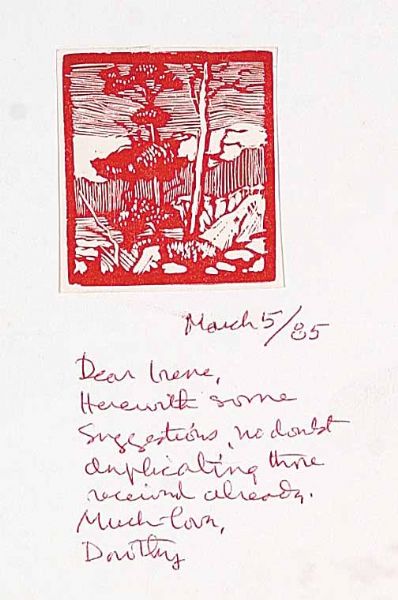 March 5/85
Dear Irene,
Herewith some
suggestions, no doubt
duplicating those
received already.
Much love,
Dorothy